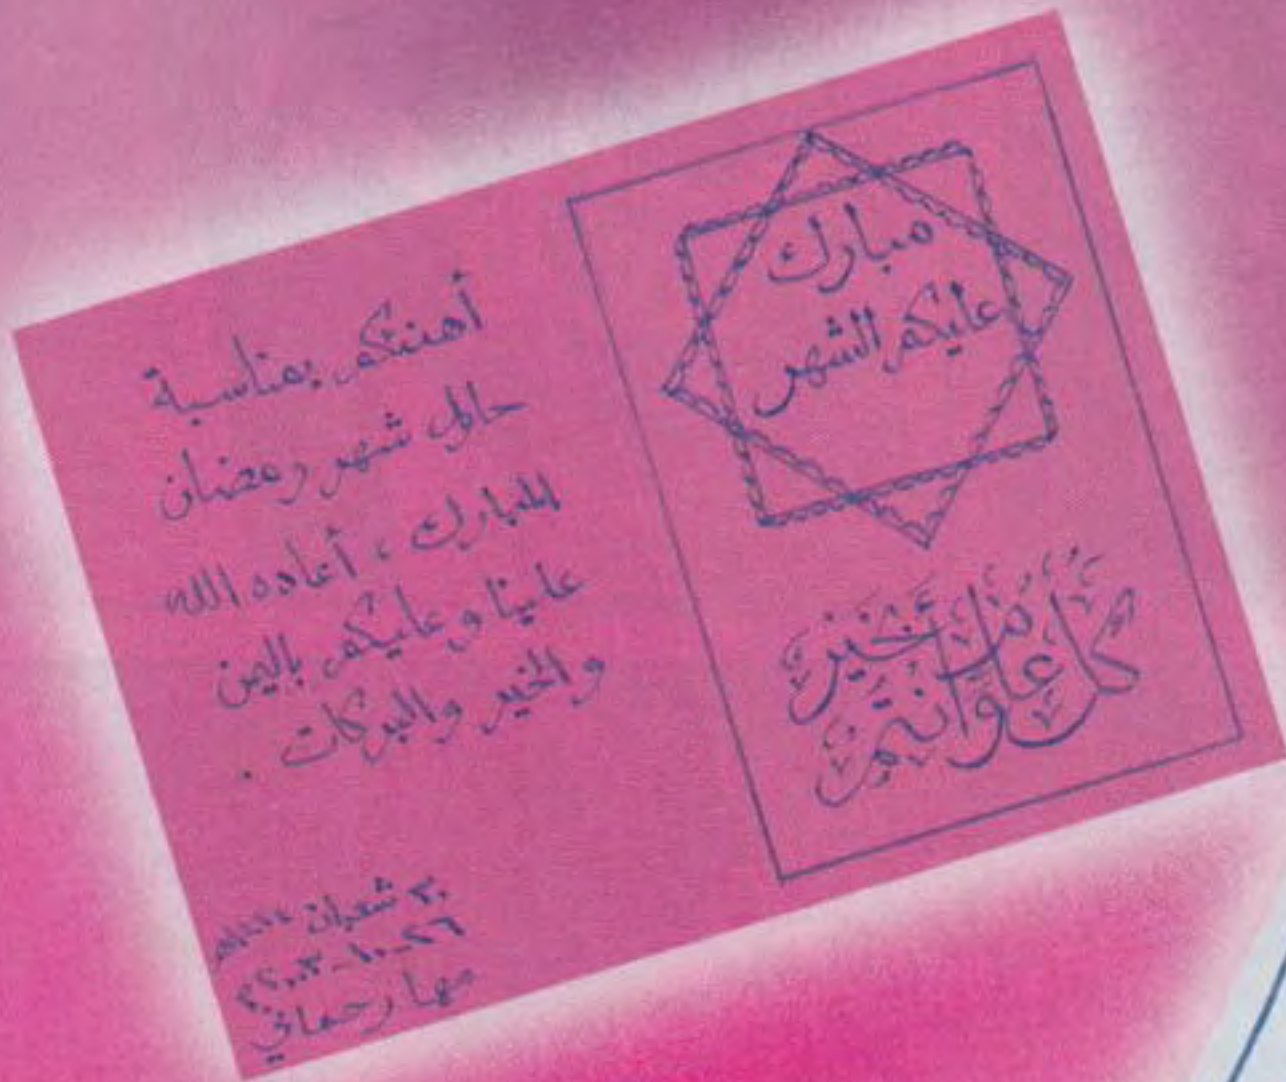 مبارك
عليكم الشهر
كل عام وأنتم بخير
أهنئكم بمناسبة
حلول شهر رمضان
المبارك ، أعاده الله
علينا وعليكم باليمن
والخير والبركات .
٣٠ شعبان ١٤٢٤هـ
٢٦-١٠-٢٠٠٣م
مها رحماني